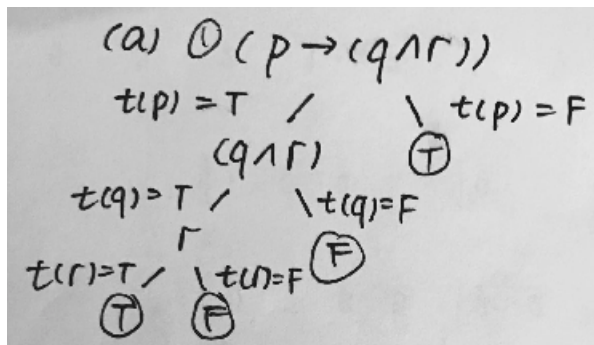 (a) ① (p → (q ∧ r))
t(p) = T t(p) = F
(q ∧ r) T
t(q) = T t(q) = F
r F
t(r) = T t(r) = F
T F